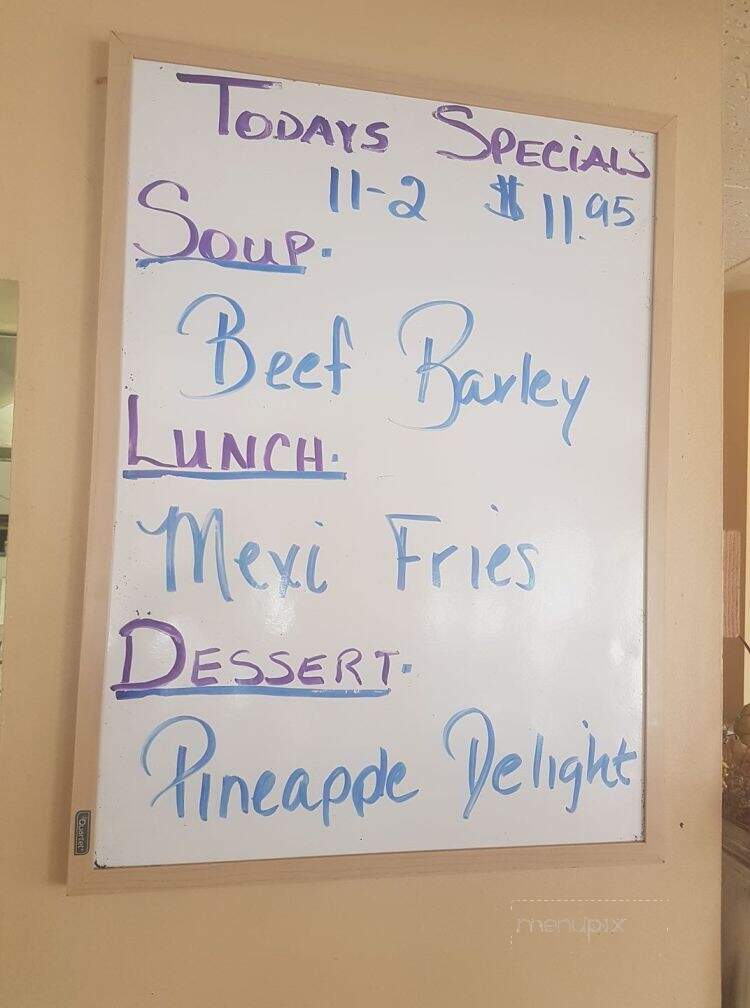 TODAYS SPECIALS
11-2 $11.95
SOUP.
Beef Barley
LUNCH.
Mexi Fries
DESSERT.
Pineapple Delight
Quartet
menupix